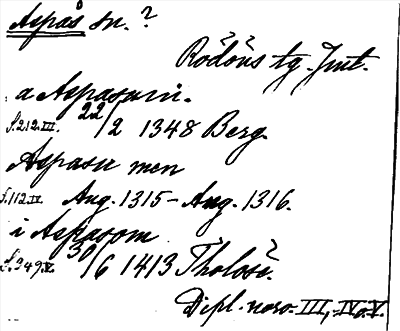 Aspås sn. ?
Rödöns tg. Jmt.
a Aspasuni.
s.212.III. 22/2 1348 Berg.
Aspasu men
s.112.IV. Aug. 1315 - Aug. 1316.
i Aspasom
s.349.V. 30/6 1413
Dipl. norv. III, IV o. V.